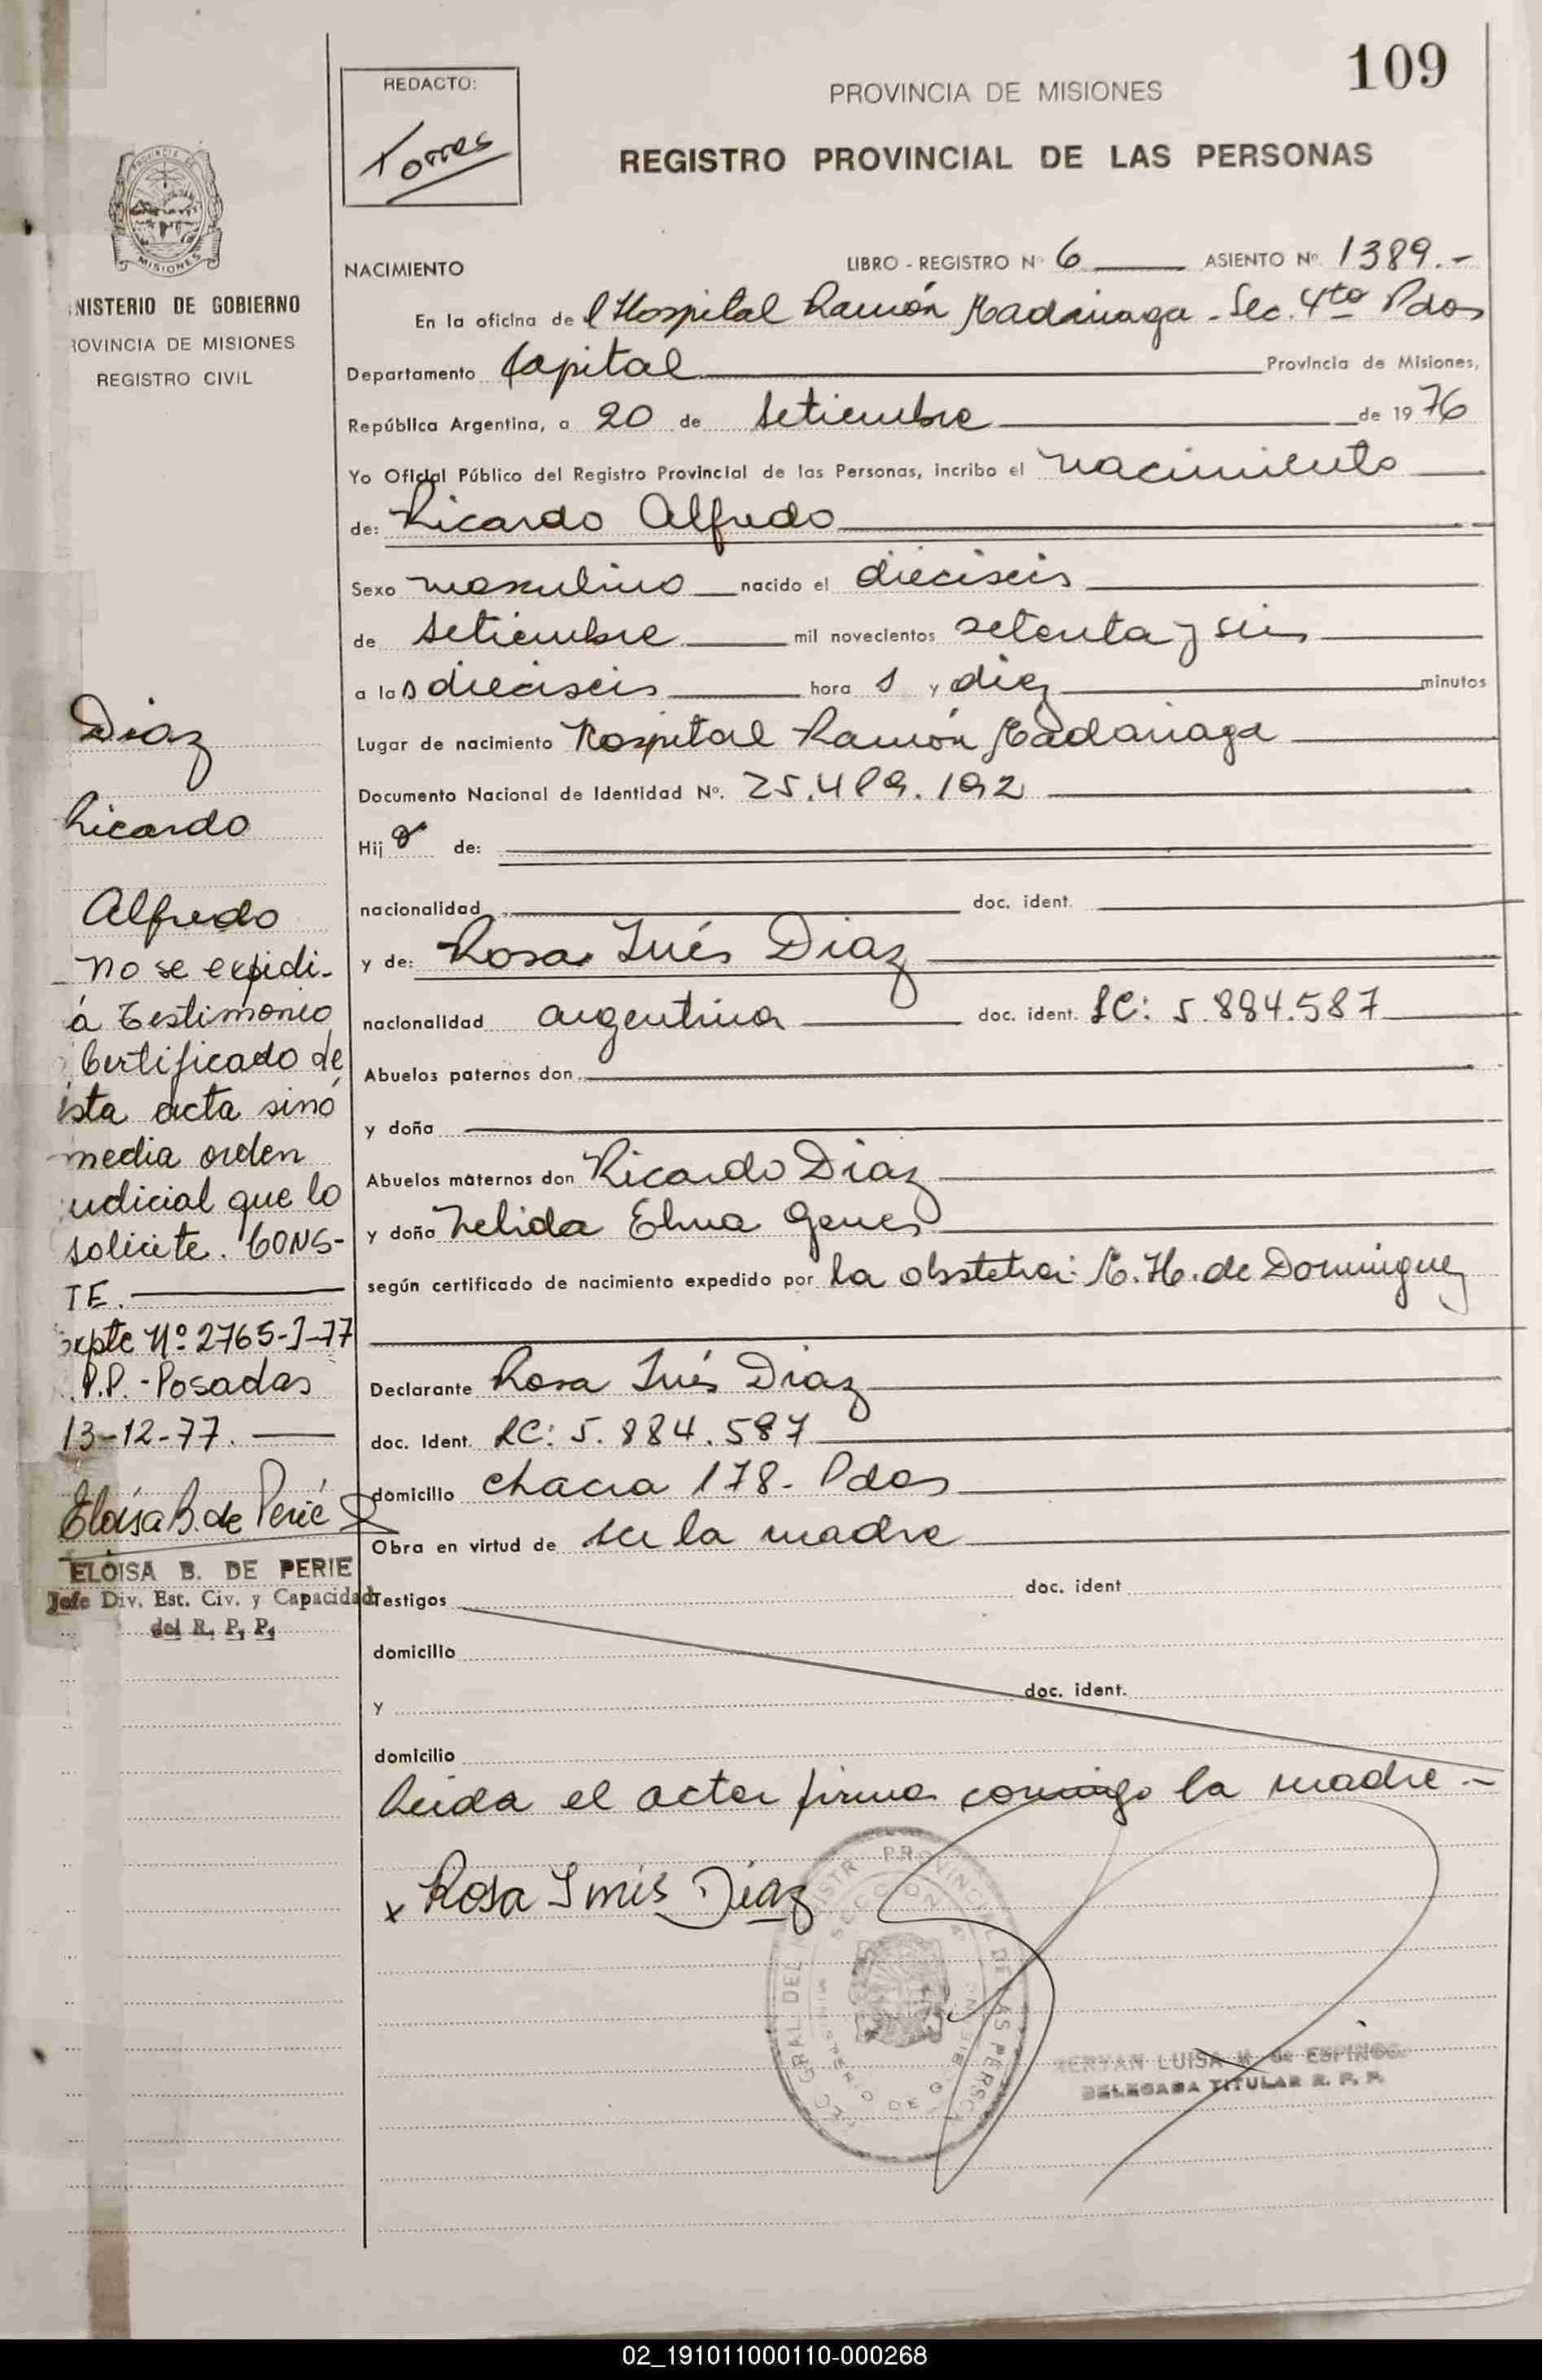 109
REDACTO:
Torres
PROVINCIA DE MISIONES
REGISTRO PROVINCIAL DE LAS PERSONAS
MISIONES
NISTERIO DE GOBIERNO
ROVINCIA DE MISIONES
REGISTRO CIVIL
NACIMIENTO LIBRO - REGISTRO Nº 6 ASIENTO Nº 1389.-
En la oficina de l Hospital Ramón Madariaga - Sec. 4to Pdas
Departamento Capital Provincia de Misiones,
República Argentina, a 20 de Setiembre de 1976
Yo Oficial Público del Registro Provincial de las Personas, incribo el nacimiento
de: Ricardo Alfredo
Sexo masculino nacido el dieciseis
de Setiembre mil novecientos setenta y seis
a las dieciseis hora s y diez minutos
Lugar de nacimiento Hospital Ramón Madariaga
Documento Nacional de Identidad Nº. 25.489.192
Hijo de:
nacionalidad doc. ident.
y de: Rosa Inés Diaz
nacionalidad argentina doc. ident. LC: 5.884.587
Abuelos paternos don
y doña
Abuelos maternos don Ricardo Diaz
y doña Nelida Elma
según certificado de nacimiento expedido por la obstetra: M.H. de Dominguez
Declarante Rosa Inés Diaz
doc. Ident. LC: 5.884.587
domicilio chacra 178- Pdas
Obra en virtud de ser la madre
Testigos doc. ident
domicilio
y doc. ident.
domicilio
Leida el acta firma conmigo la madre -
x Rosa Inés Diaz
LUISA M. de ESPINOS
DELEGADA TITULAR R. P. P.
Diaz
Ricardo
Alfredo
No se expidi-
á Testimonio
Certificado de
ésta acta sinó
media orden
udicial que lo
solicite. CONS-
TE.
expte Nº 2765-J-77
P.P. - Posadas
13-12-77.
Eloisa B. de Perié
ELOISA B. DE PERIE
Jefe Div. Est. Civ. y Capacidad
del R. P. P.
02_191011000110-000268